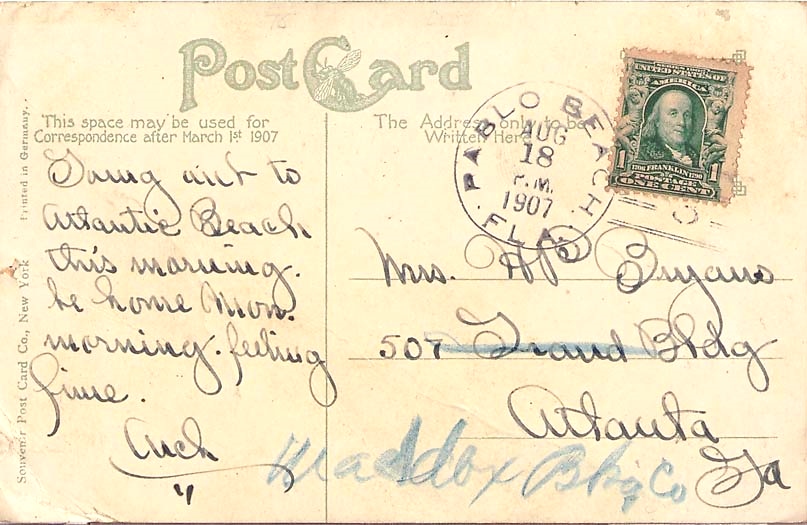 Post Card
This space may be used for
Correspondence after March 1st 1907
The Address only to be
Written Here
PABLO BEACH
AUG
18
P.M.
1907
FLA.
SERIES 1902
UNITED STATES OF
AMERICA
1 1
1706 FRANKLIN 1790
POSTAGE
ONE CENT
Going out to
Atlantic Beach
this morning.
be home Mon.
morning. feeling
fine.
Arch
Mrs. A P Bryans
507 Grand Bldg
Atlanta
Ga
Maddox Bkg Co
Printed in Germany.
Souvenir Post Card Co., New York